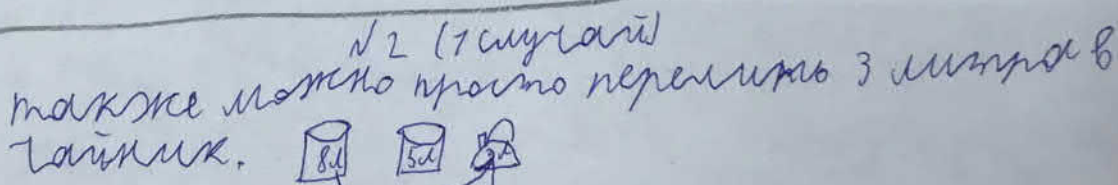 №2 (1 случай)
также можно просто перелить 3 литра в
чайник. 8л 5л 3л